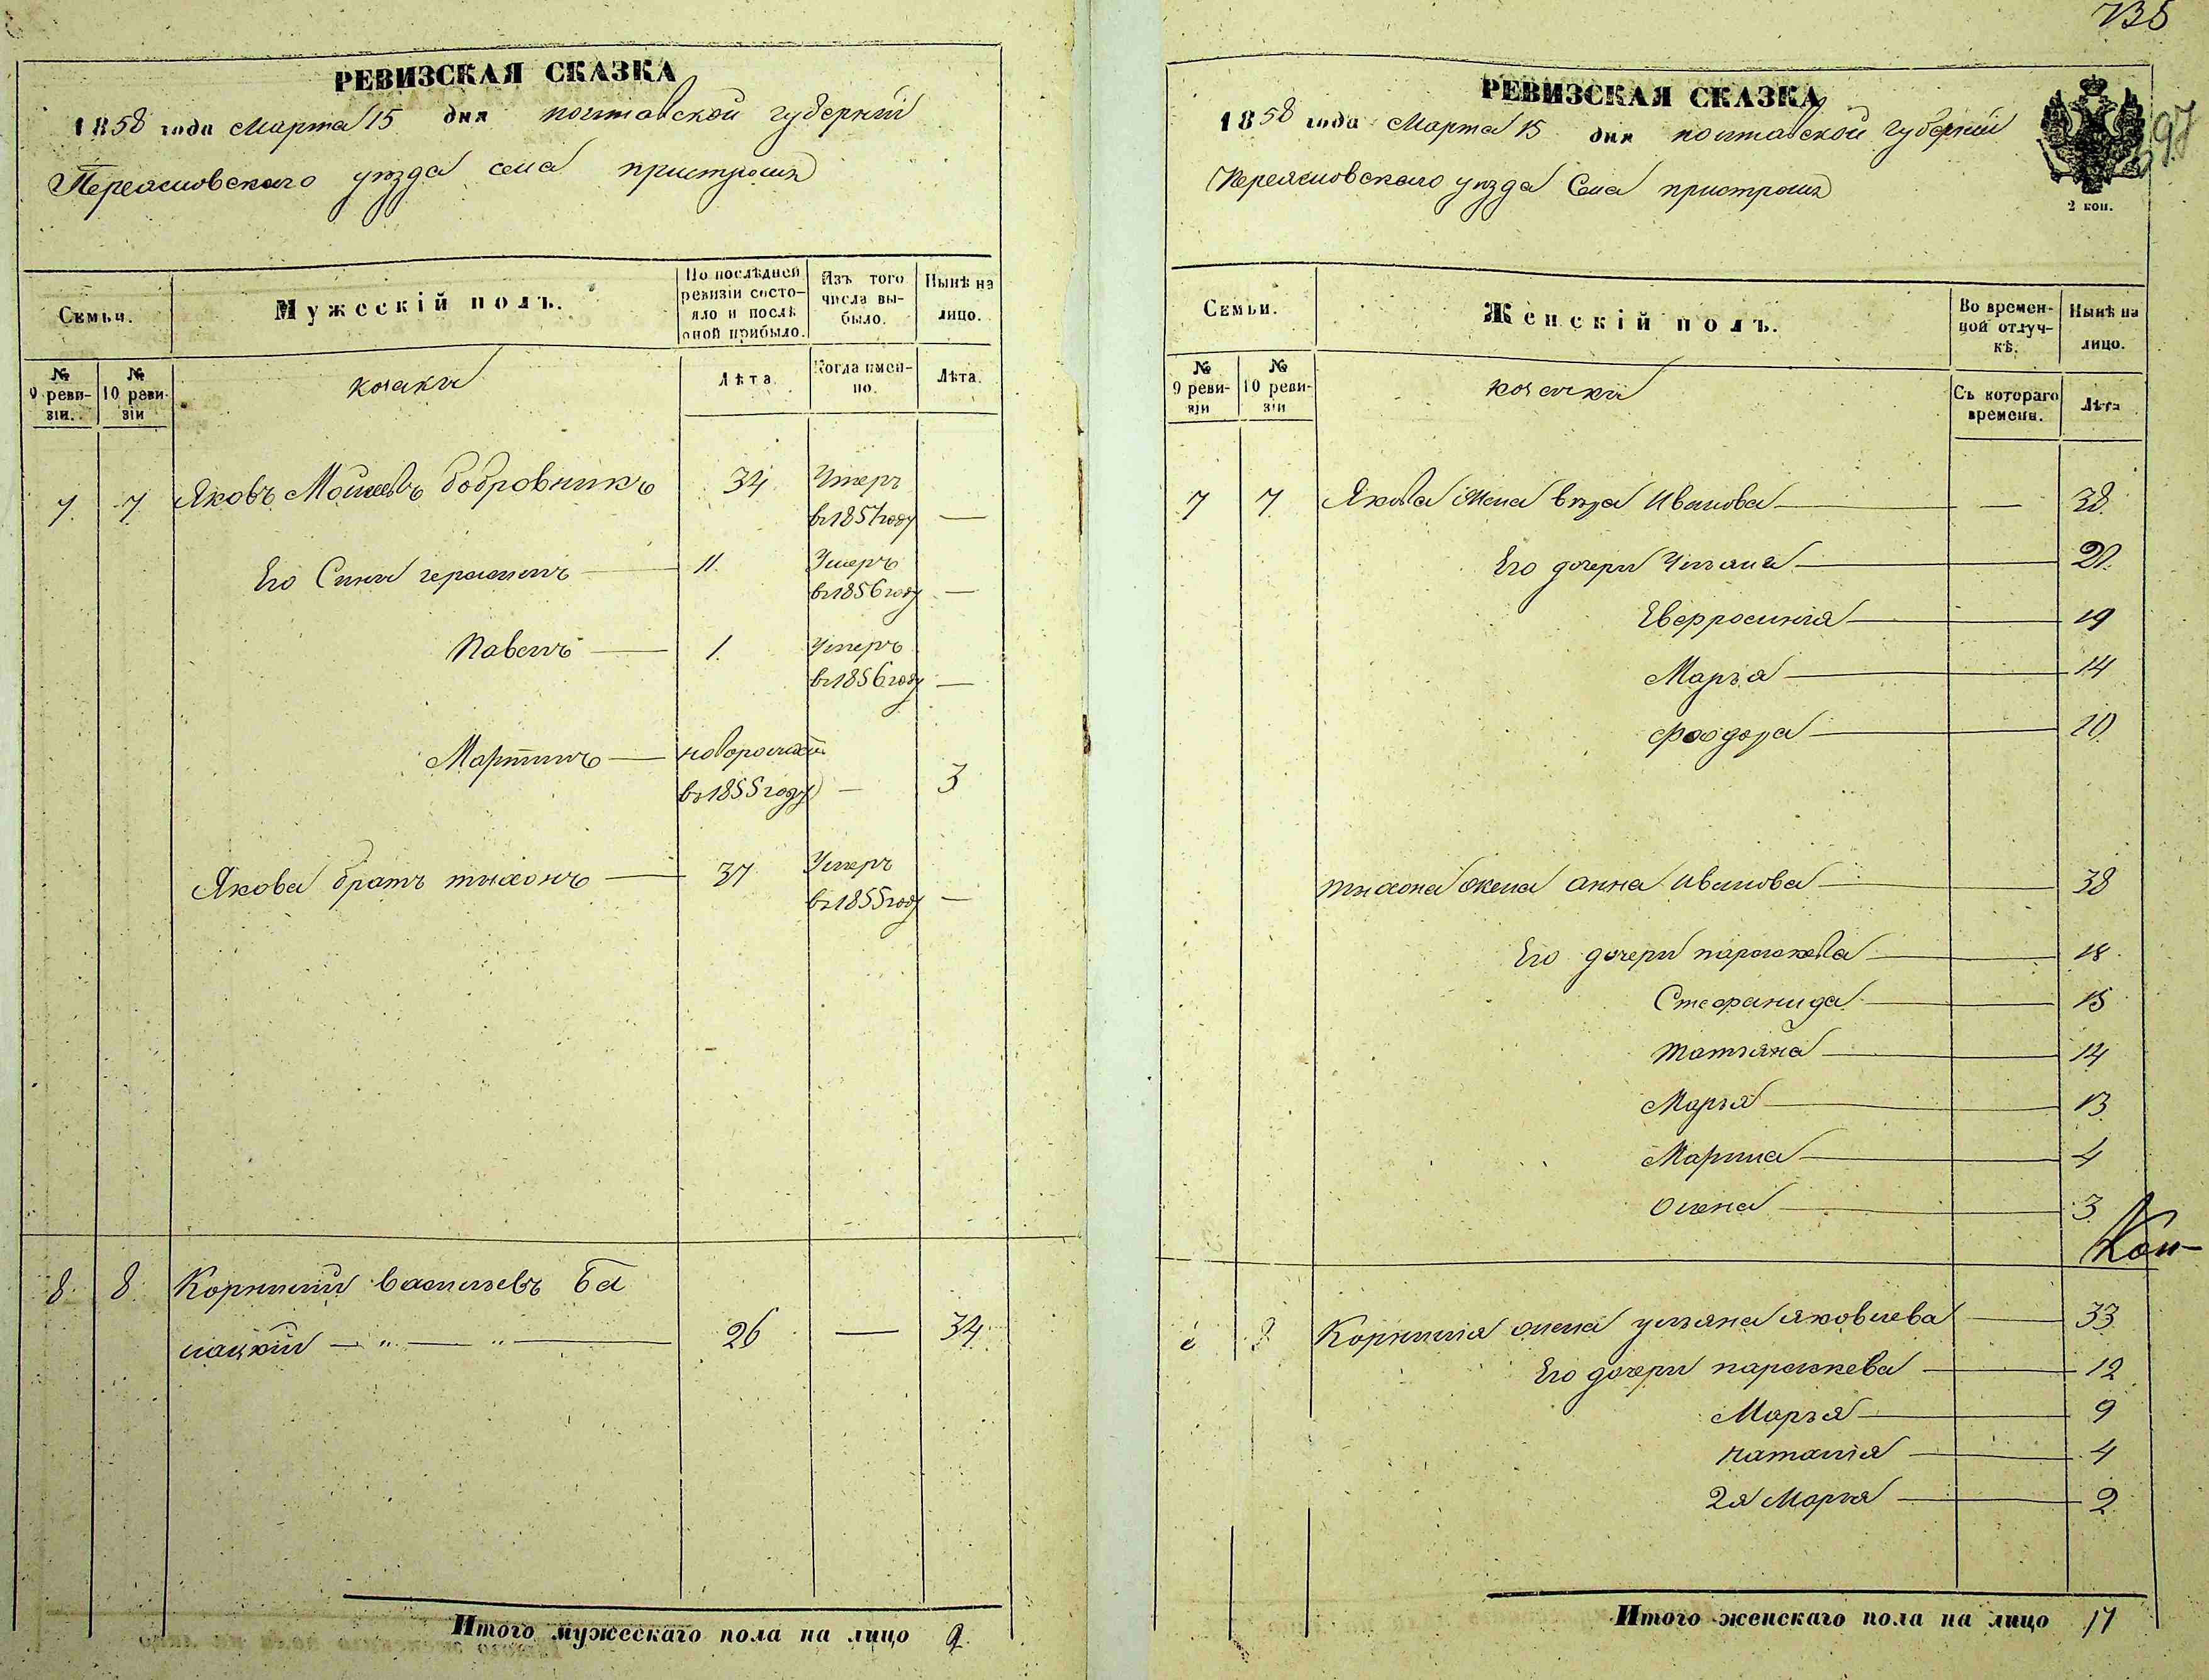 РЕВИЗСКАЯ СКАЗКА
1858 года Марта 15 дня полтавской губернии
Переясловского уезда села пристромъ
Семьи.
Мужескій полъ.
По послѣдней ревизіи состо-
яло и послѣ
оной прибыло.
Изъ того
числа вы-
было.
Нынѣ на
лицо.
№
9 реви-
зіи.
№
10 реви-
зіи
козаки
Лѣта.
Когда имен-
но.
Лѣта.
7 7 Яковъ Мойсеевъ бобровникъ 34 Умеръ
въ 1857 году —
Его Сыны герасимъ — 11. Умеръ
въ 1856 году —
Павелъ — 1. Умеръ
въ 1856 году —
Мартинъ — новорожден
въ 1855 году — 3
Якова братъ тихонъ — 37 Умеръ
въ 1855 году —
8. 8. Корнилий васильевъ ба
лацкий — „ — „ — 26 — 34
Итого мужескаго пола на лицо 2.
135
97
РЕВИЗСКАЯ СКАЗКА
1858 года Марта 15 дня полтавской губернии
Переясловского уезда Села пристромъ
2 коп.
Семьи.
Женскій полъ.
Во времен-
ной отлуч-
кѣ.
Нынѣ на
лицо.
№
9 реви-
зіи
№
10 реви-
зіи
козачки
Съ котораго
времени.
Лѣта
7 7 Якова жена вера Иванова — — 38.
Его дочери Ульяна — 21.
Евфросиния — 19
Марья — 14
феодора — 10
тихона жена анна иванова — 38
Его дочери параскева — 18
Стефанида — 15
татьяна — 14
Марья — 13
Марина — 4
олена — 3
8 Корнилия жена ульяна яковлева — 33
Его дочери параскева — 12
Марья — 9
наталия — 4
2я Марья — 2
Итого женскаго пола на лицо 17